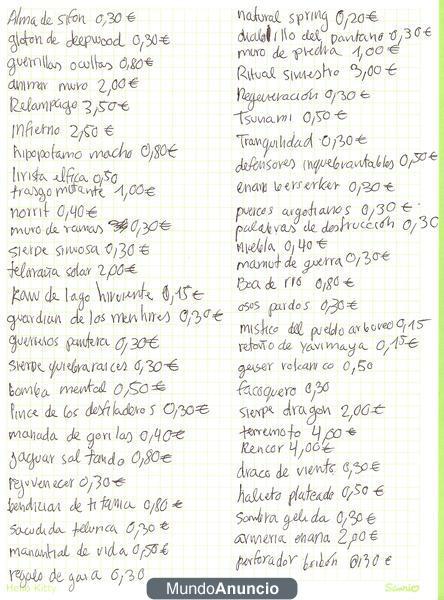 Alma de sifon 0,30€
gloton de deepwood 0,30€
guerrillas ocultas 0,80€
animar muro 2,00€
Relampago 3,50€
Infierno 2,50€
hipopotamo macho 0,80€
lirista elfica 0,50
trasgo mutante 1,00€
norrit 0,40€
muro de ramas 0,30€
sierpe sinuosa 0,30€
telaraña solar 2,00€
kavu de lago hirviente 0,15€
guardian de los menhires 0,30€
guerreros pantera 0,30€
sierpe quiebraraices 0,30€
bomba mental 0,50€
lince de los desfiladeros 0,30€
manada de gorilas 0,40€
jaguar saltando 0,80€
rejuvenecer 0,30€
bendicion de titania 0,80€
sacudida telurica 0,30€
manantial de vida 0,50€
regalo de gaia 0,30
Hello Kitty
natural spring 0,20€
diablillo del pantano 0,30€
muro de piedra 1,00€
Ritual siniestro 3,00€
Regeneración 0,30€
Tsunami 0,50€
Tranquilidad 0,30€
defensores inquebrantables 0,50€
enano berserker 0,30€
puercos argotianos 0,30€
palabras de destrucción 0,30
niebla 0,40€
mamut de guerra 0,30€
Boa de rio 0,80€
osos pardos 0,30€
mistico del pueblo arboreo 0,15
retoño de yavimaya 0,15€
geiser volcanico 0,50
facoquero 0,30
sierpe dragon 2,00€
terremoto 4,00€
Rencor 4,00€
draco de viento 0,30€
halieto plateado 0,50€
Sombra gelida 0,30€
armeria enana 2,00€
perforador bribón 0,30€
Sanrio
MundoAnuncio